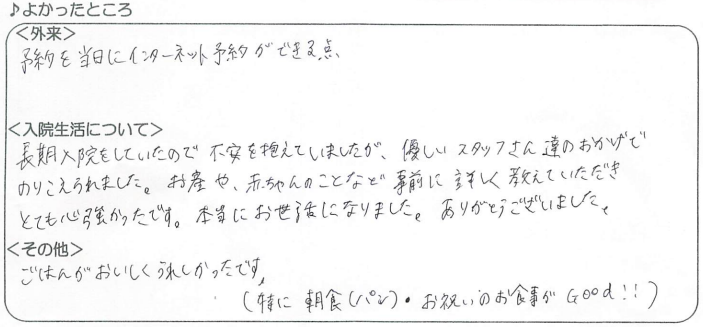 ♪よかったところ
＜外来＞
予約を当日にインターネット予約ができる点、
＜入院生活について＞
長期入院をしていたので不安を抱えていましたが、優しいスタッフさん達のおかげで
のりこえられました。お産や、赤ちゃんのことなど事前に詳しく教えていただき
とても心強かったです。本当にお世話になりました。ありがとうございました。
＜その他＞
ごはんがおいしくうれしかったです。
(特に朝食(パン)・お祝いのお食事がGood!!)